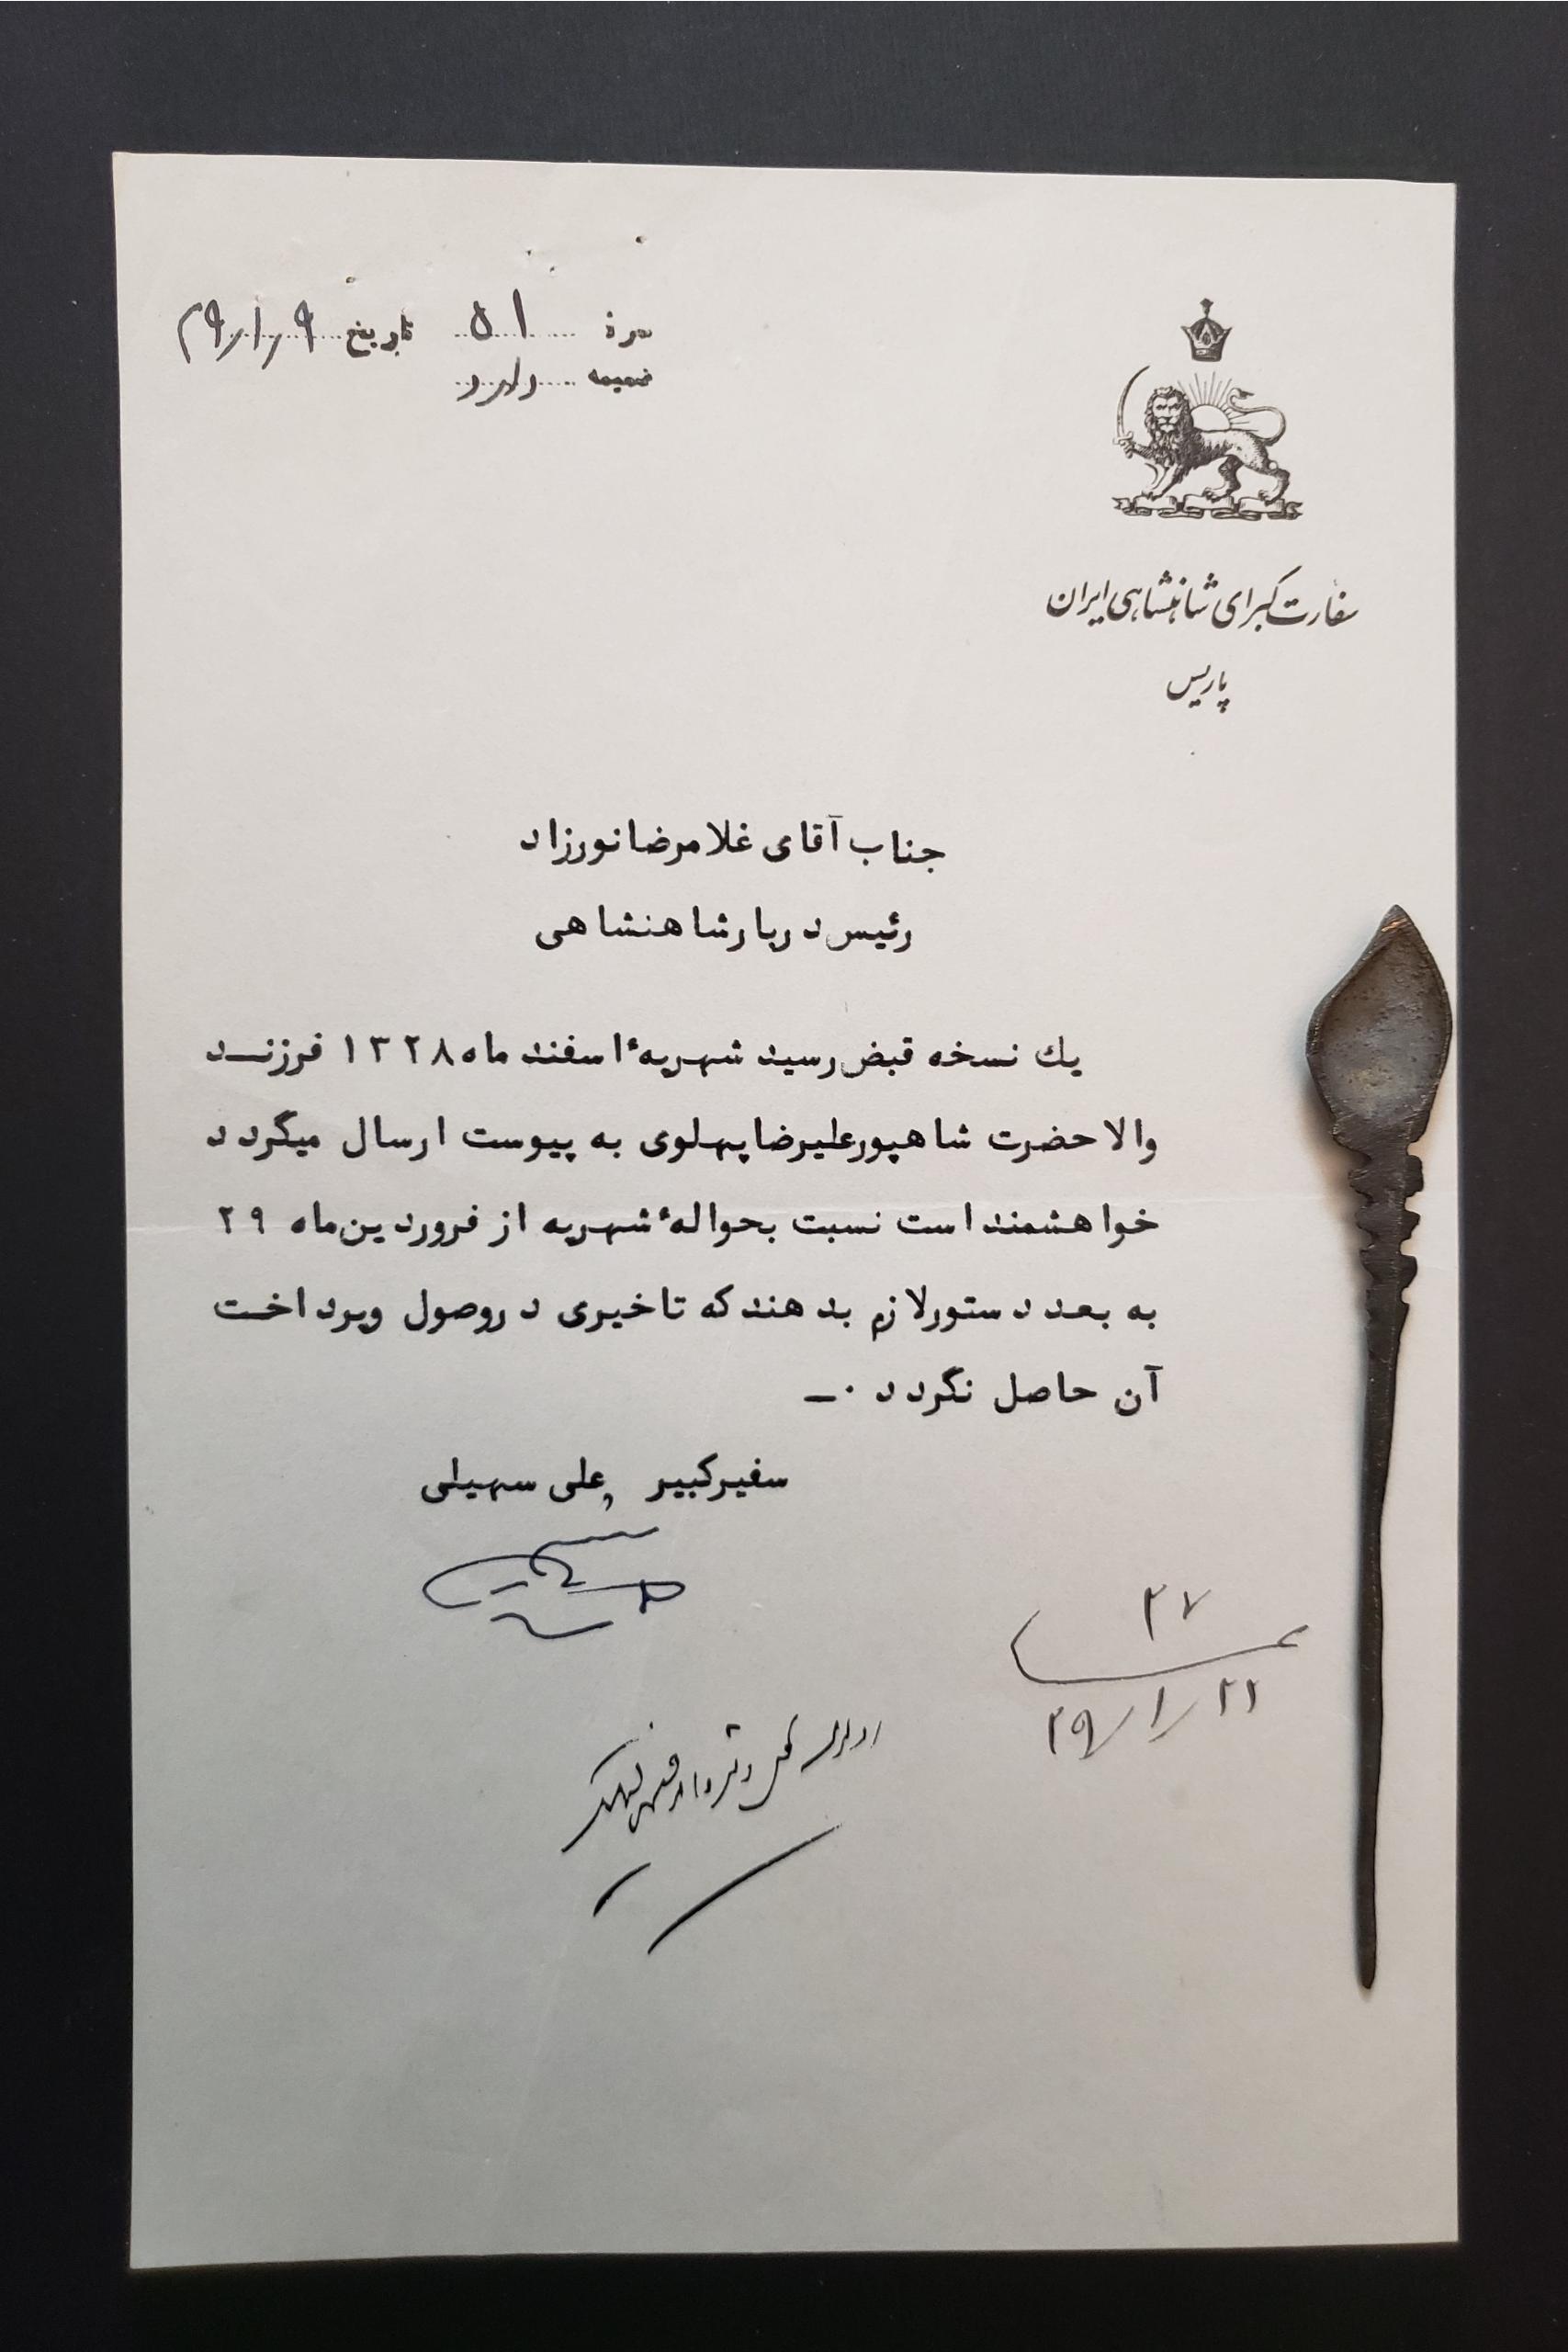 نمره ۵۱ تاریخ ۲۹/۱/۹
ضمیمه دارد
سفارت کبرای شاهنشاهی ایران
پاریس
جناب آقای غلامرضا نورزاد
رئیس دربار شاهنشاهی
یك نسخه قبض رسید شهریهٔ اسفند ماه ۱۳۲۸ فرزند
والاحضرت شاهپور علیرضا پهلوی به پیوست ارسال میگردد
خواهشمند است نسبت بحوالهٔ شهریه از فروردین ماه ۲۹
به بعد دستور لازم بدهند که تاخیری در وصول وپرداخت
آن حاصل نگردد ۰ـ
سفیرکبیر , علی سهیلی
۲۷
۲۹/۱/۲۱